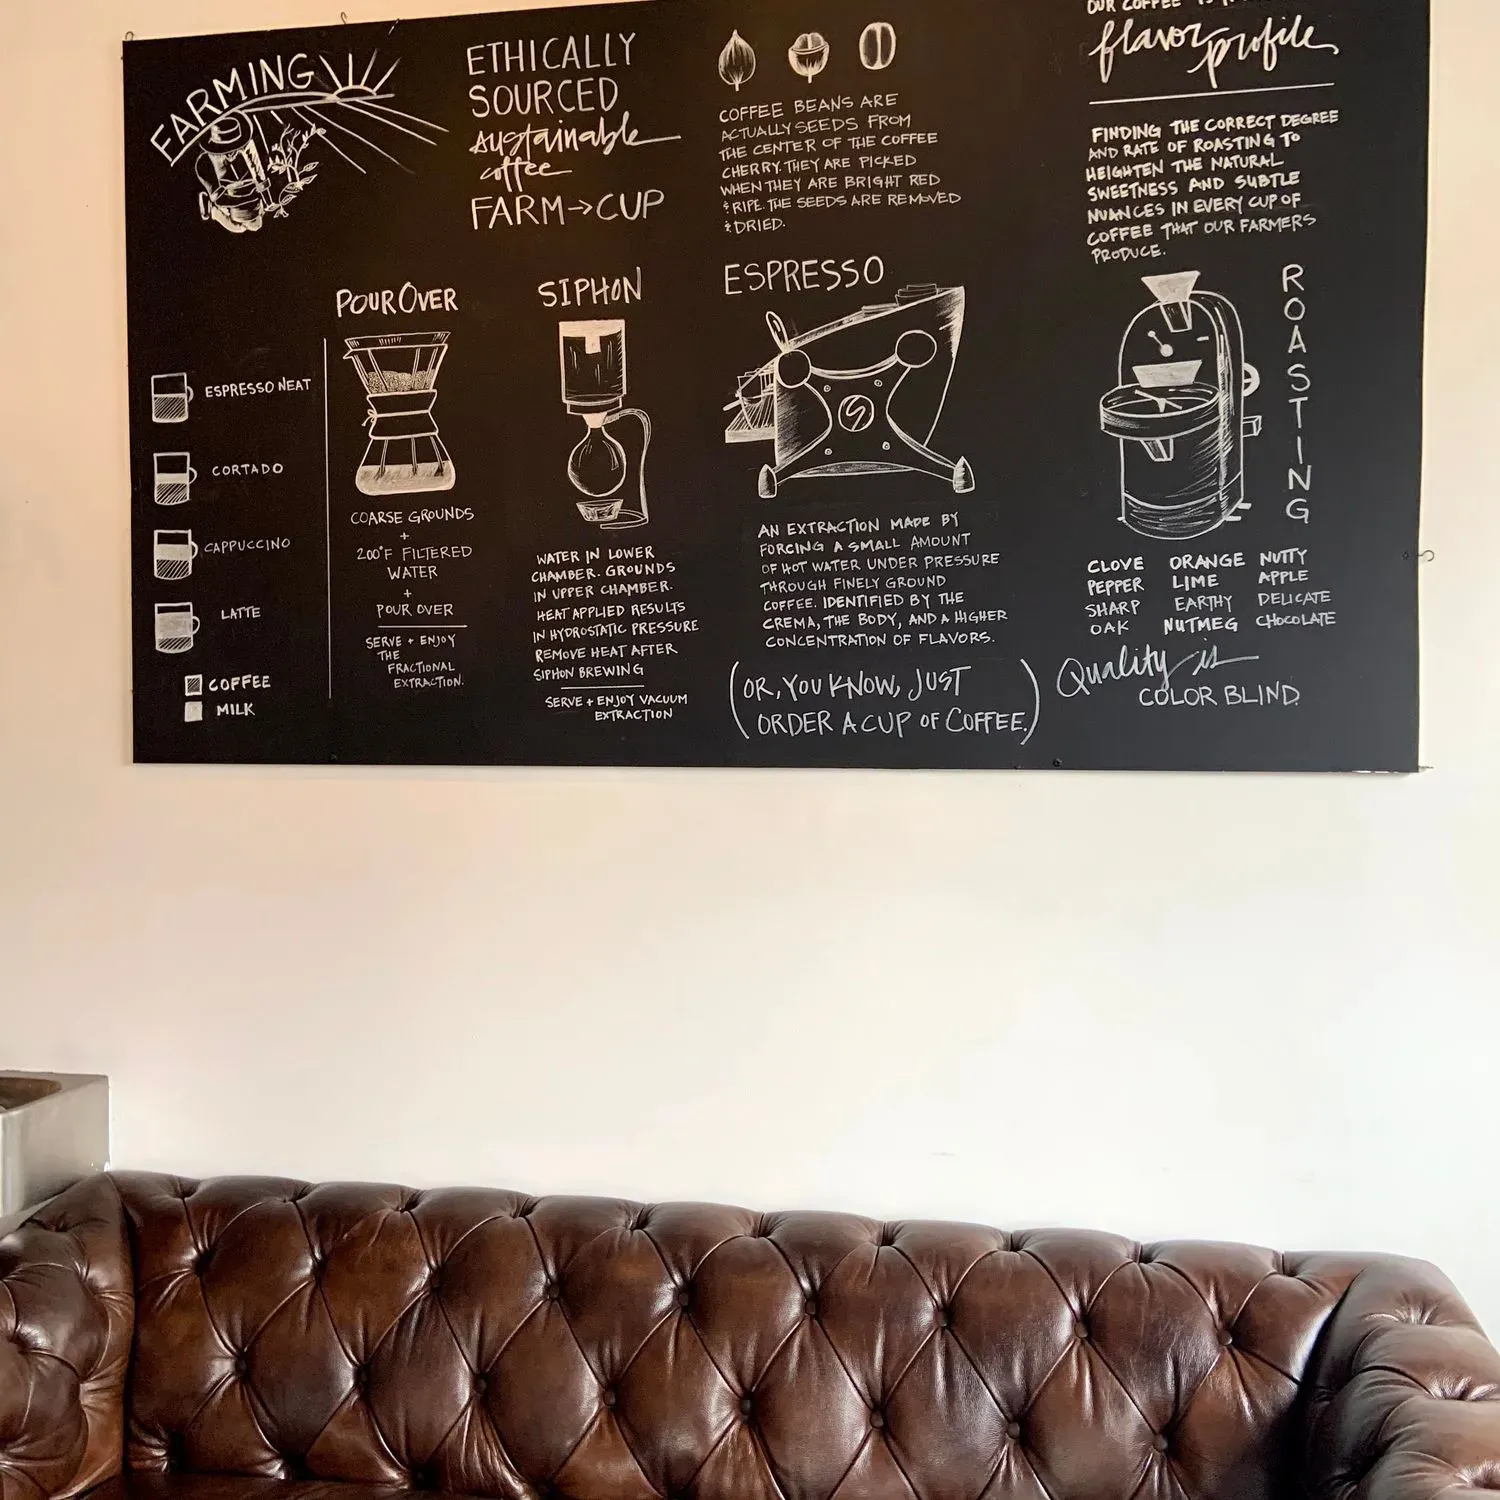 FARMING
ETHICALLY
SOURCED
sustainable
coffee
FARM→CUP
COFFEE BEANS ARE
ACTUALLY SEEDS FROM
THE CENTER OF THE COFFEE
CHERRY. THEY ARE PICKED
WHEN THEY ARE BRIGHT RED
& RIPE. THE SEEDS ARE REMOVED
& DRIED.
OUR COFFEE IS
flavor profile
FINDING THE CORRECT DEGREE
AND RATE OF ROASTING TO
HEIGHTEN THE NATURAL
SWEETNESS AND SUBTLE
NUANCES IN EVERY CUP OF
COFFEE THAT OUR FARMERS
PRODUCE.
ESPRESSO NEAT
CORTADO
CAPPUCCINO
LATTE
COFFEE
MILK
POUR OVER
COARSE GROUNDS
+
200°F FILTERED
WATER
+
POUR OVER
SERVE + ENJOY
THE
FRACTIONAL
EXTRACTION.
SIPHON
WATER IN LOWER
CHAMBER. GROUNDS
IN UPPER CHAMBER.
HEAT APPLIED RESULTS
IN HYDROSTATIC PRESSURE
REMOVE HEAT AFTER
SIPHON BREWING
SERVE + ENJOY VACUUM
EXTRACTION
ESPRESSO
AN EXTRACTION MADE BY
FORCING A SMALL AMOUNT
OF HOT WATER UNDER PRESSURE
THROUGH FINELY GROUND
COFFEE. IDENTIFIED BY THE
CREMA, THE BODY, AND A HIGHER
CONCENTRATION OF FLAVORS.
(OR, YOU KNOW, JUST
ORDER A CUP OF COFFEE.)
ROASTING
CLOVE ORANGE NUTTY
PEPPER LIME APPLE
SHARP EARTHY DELICATE
OAK NUTMEG CHOCOLATE
Quality is
COLOR BLIND.